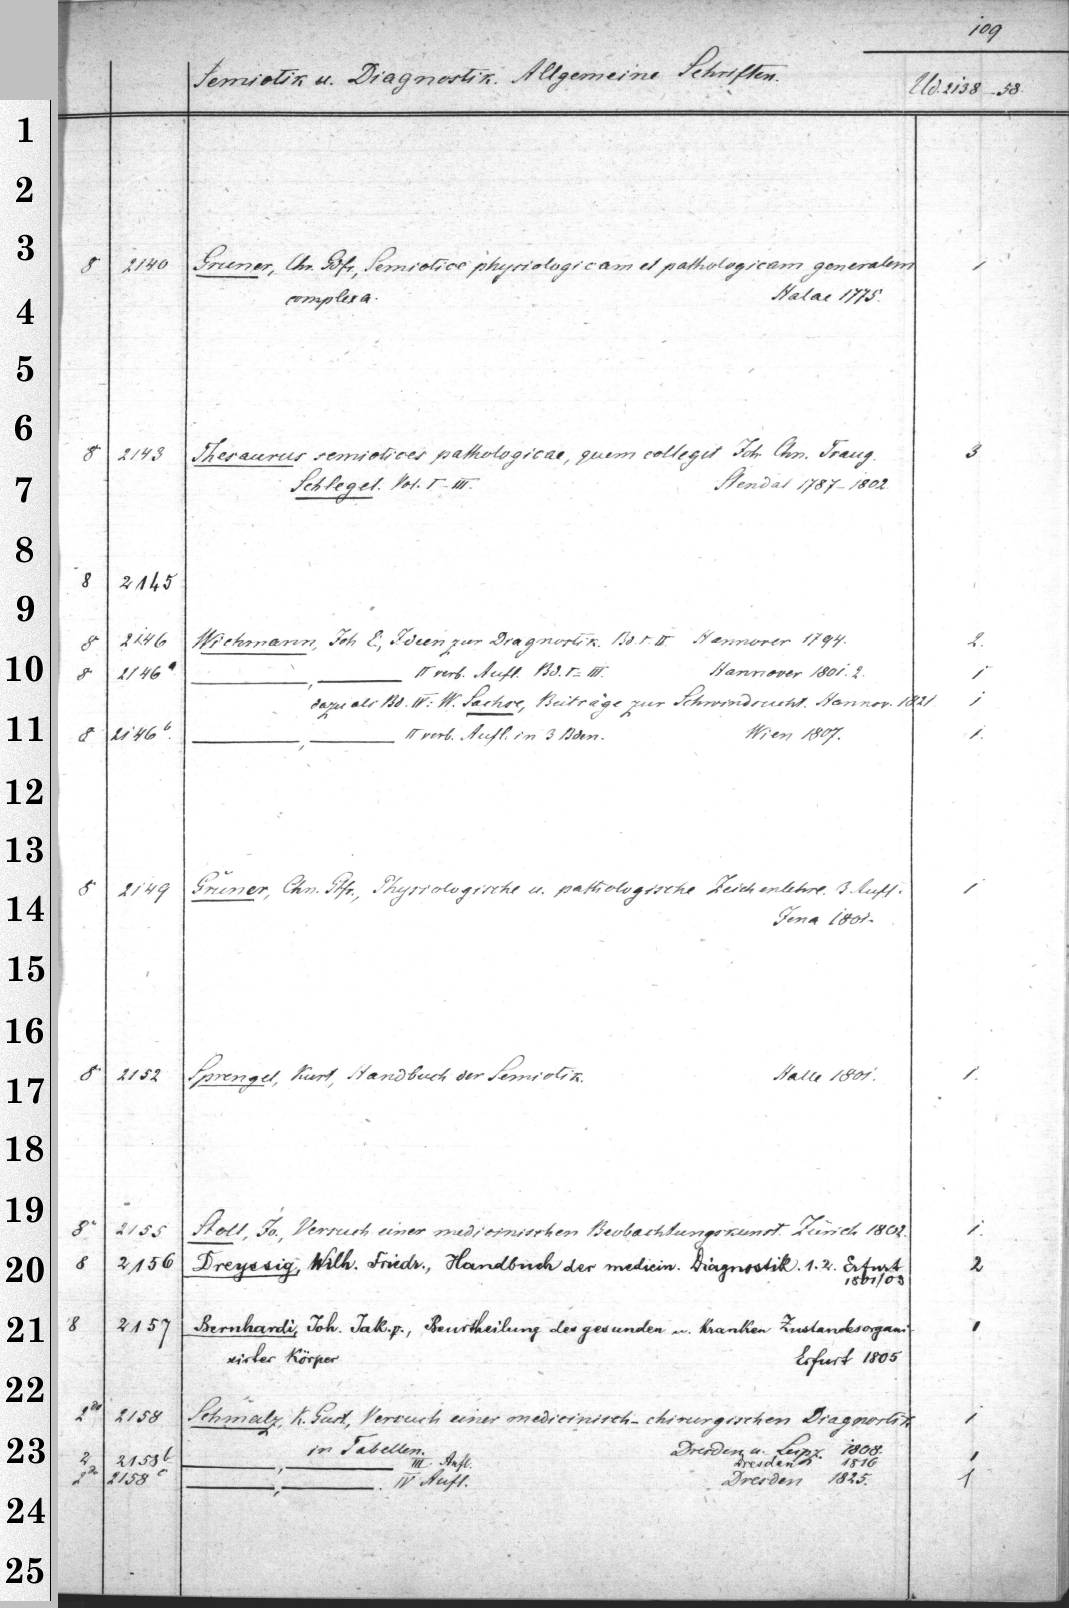 109
Semiotik u. Diagnostik. Allgemeine Schriften.
Ud. 2138-58.
1
2
3
8 2140 Gruner, Chr. Gfr., Semiotice physiologicam et pathologicam generalem 1
complexa. Halae 1775.
4
5
6
8 2143 Thesaurus semiotices pathologicae, quem collegit Joh. Chn. Traug. 3
7
Schlegel. Vol. I-III. Stendal 1787-1802
8
8 2145
9
8 2146 Wichmann, Joh. E., Ideen zur Diagnostik. Bd. I. II Hannover 1794. 2.
10
8 2146a ———, ——— II verb. Aufl. Bd. I-III. Hannover 1801.2. 1
dazu als Bd. IV: W. Sachse, Beiträge zur Schwindsucht. Hannov. 1821 1
11
8 2146b. ———, ——— II verb. Aufl. in 3 Bden. Wien 1807. 1.
12
13
8 2149 Grŭner, Chn. Gfr., Physiologische u. pathologische Zeichenlehre. 3. Aufl. 1
14
Jena 1801.
15
16
8 2152 Sprengel, Kurt, Handbuch der Semiotik. Halle 1801. 1.
17
18
19
8° 2155 Stoll, Jo., Versuch einer medicinischen Beobachtungskunst. Zürich 1802. 1.
20
8 2156 Dreyssig, Wilh. Friedr., Handbuch der medicin. Diagnostik. 1. 2. Erfurt 2
1801/03
21
8 2157 Bernhardi, Joh. Jak. , Beurtheilung des gesunden u. kranken Zustandes organi- 1
sirter Körper Erfurt 1805
22
2do 2158 Schmalz, K. Gust., Versuch einer medicinisch-chirurgischen Diagnostik 1
in Tabellen. Dresden u. Leipz. 1808.
23
2 2158b ———, ——— III. Aufl. Dresden 1816 1
2do 2158c ———, ———. IV Aufl. Dresden 1825. 1
24
25